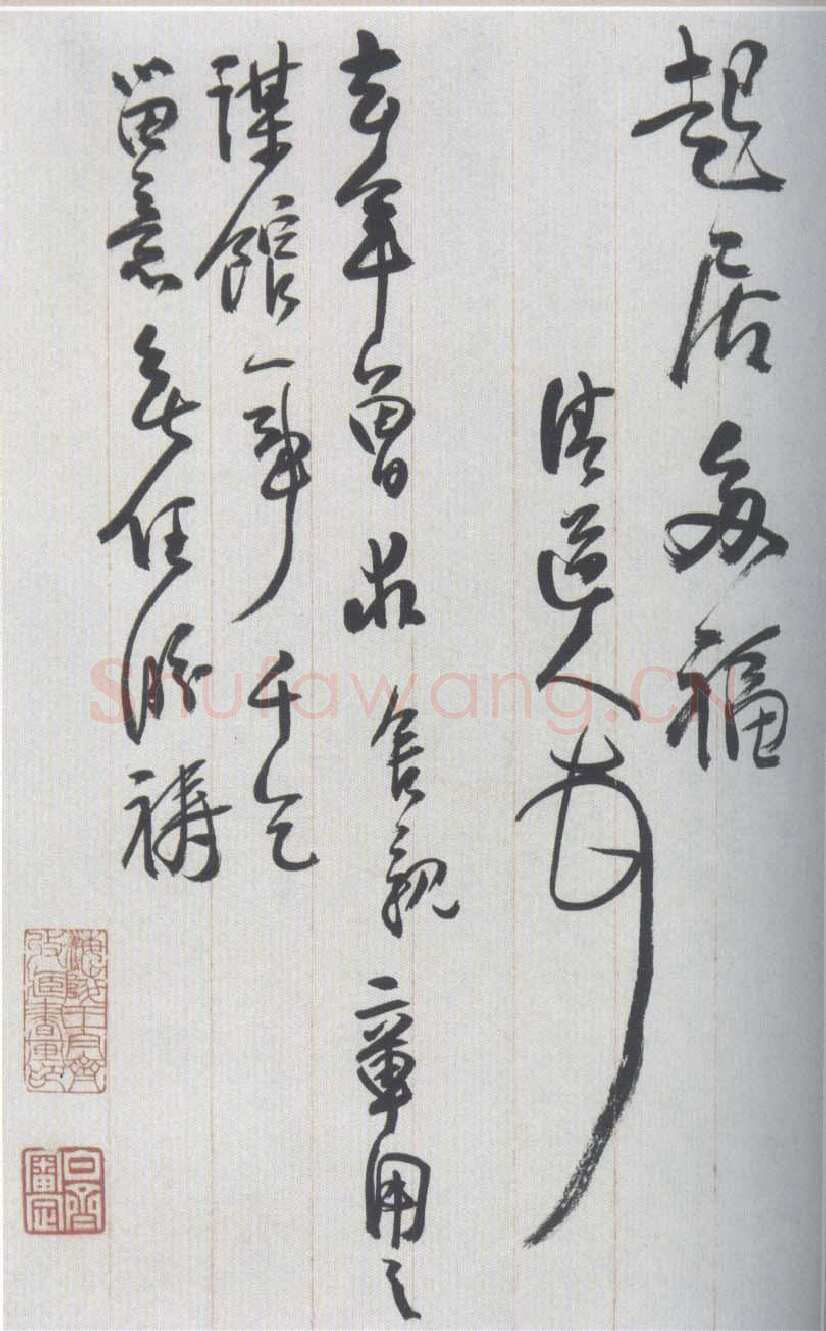 起居多福
清道人
去年曾求 舍親 章用之
謀館一事 千乞
留意 無任禱
shufawang.CN